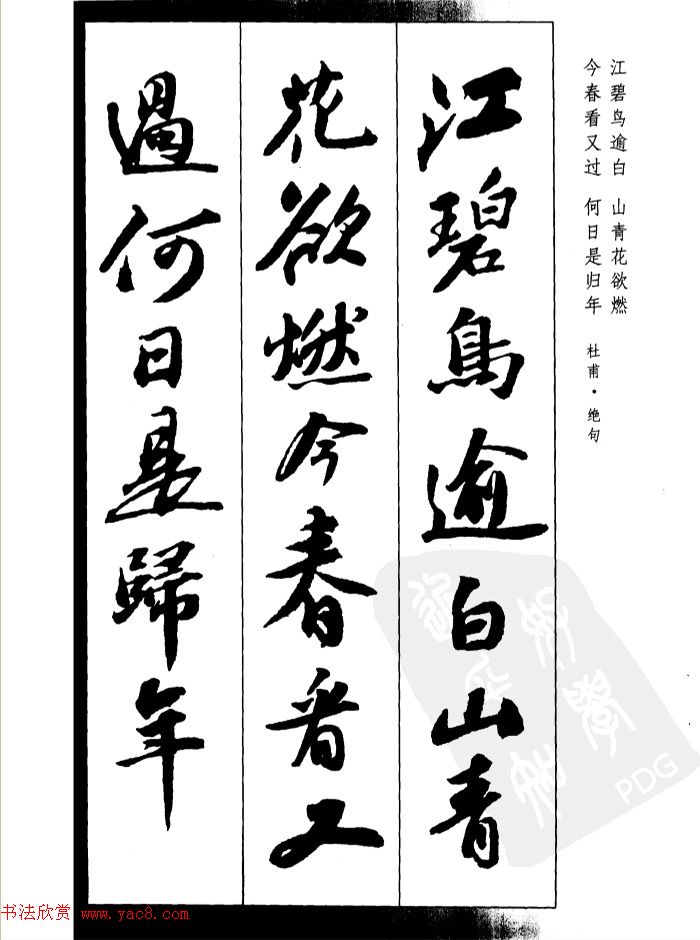 江碧鸟逾白 山青花欲燃
今春看又过 何日是归年 杜甫·绝句
江碧鳥逾白山青
花欲燃今春看又
過何日是歸年
PDG
书法欣赏 www.yac8.com